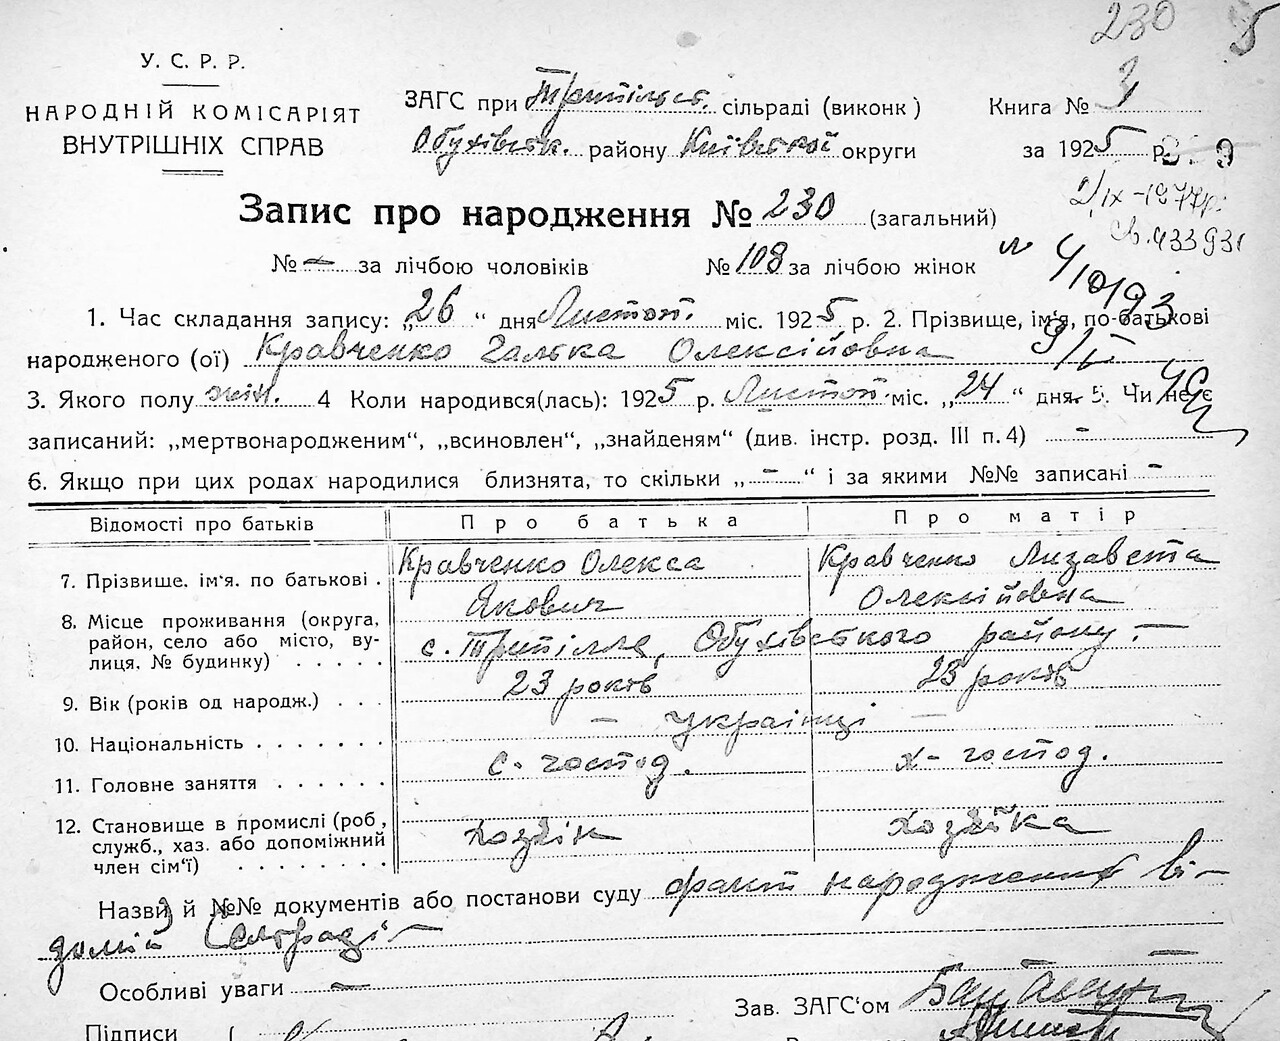 230 5
У. С. Р. Р.
НАРОДНІЙ КОМІСАРІЯТ
ВНУТРІШНІХ СПРАВ
ЗАГС при Трипільск. сільраді (виконк) Книга № 3
Обухівськ. району Київської округи за 1925 р. 9
Запис про народження № 230 (загальний)
2/ІХ-1977р.
№ — за лічбою чоловіків № 108 за лічбою жінок
4/10/93
1. Час складання запису: „26" дня Листоп. міс. 1925 р. 2. Прізвище, ім'я, по-батькові
народженого (ої) Кравченко Галька Олексійовна
3. Якого полу жін. 4 Коли народився(лась): 1925 р. Листоп. міс. „24" дня. 5. Чи не є
записаний: „мертвонародженим", „всиновлен", „знайденям" (див. інстр. розд. III п. 4) -
6. Якщо при цих родах народилися близнята, то скільки „-" і за якими №№ записані -
Відомості про батьків Про батька Про матір
7. Прізвище. ім'я. по батькові . Кравченко Олекса Якович Кравченко Лизавета Олексійовна
8. Місце проживання (округа,
район, село або місто, ву-
лиця. № будинку) . . . . . с. Трипілля, Обухівського району. —
9. Вік (років од народж.) . . . 23 років 23 років
10. Національність . . . . . . . — українці —
11. Головне заняття . . . . . . с-господ. х-господ.
12. Становище в промислі (роб,
служб., хаз. або допоміжний
член сім'ї) . . . . . . . Хозяїн Хозяйка
Назви й №№ документів або постанови суду факт народження ві-
домій Сельраді —
Особливі уваги —
Зав. ЗАГС'ом
Підписи